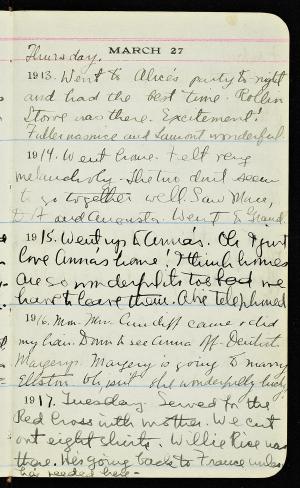 MARCH 27
Thursday.
1913. Went to Alice's party to night
and had the best time. Rollin
Stone was there. Excitement!
Fuller was nice and Lamont wonderful.
1914. Went home. Felt very
melancholy. The two don't seem
to go together well. Saw
and Augusta. Went to Grand.
1915. Went up to Anna's. Oh I just
love Anna's home! I think homes
are so wonderful its too bad we
have to leave them. Abe telephoned
1916. Mrs. Cundiff came & did
my hair. Down to see Anna off. Dentist
Margery's. Margery is going to marry
Ellston. Oh, isn't she wonderfully lucky!
1917. Tuesday. Served for the
Red Cross with mother. We cut
out eight shirts. Willie Rice was
there. He's going back to France unless
he's needed here.